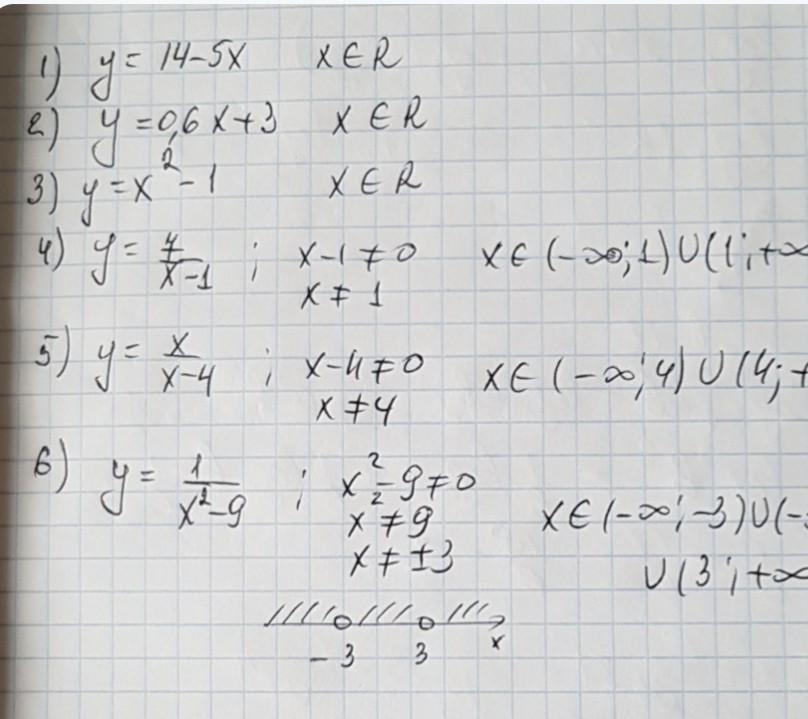 1) y = 14-5x x ∈ R
2) y = 0,6x+3 x ∈ R
3) y = x² - 1 x ∈ R
4) y = 4/(x-1) ; x-1 ≠ 0 x ∈ (-∞; 1) ∪ (1; +∞
x ≠ 1
5) y = x/(x-4) ; x-4 ≠ 0 x ∈ (-∞; 4) ∪ (4; +
x ≠ 4
6) y = 1/(x²-9) ; x²-9 ≠ 0
x² ≠ 9 x ∈ (-∞; -3) ∪ (-3
x ≠ ±3 ∪ (3; +∞
-3 3 x